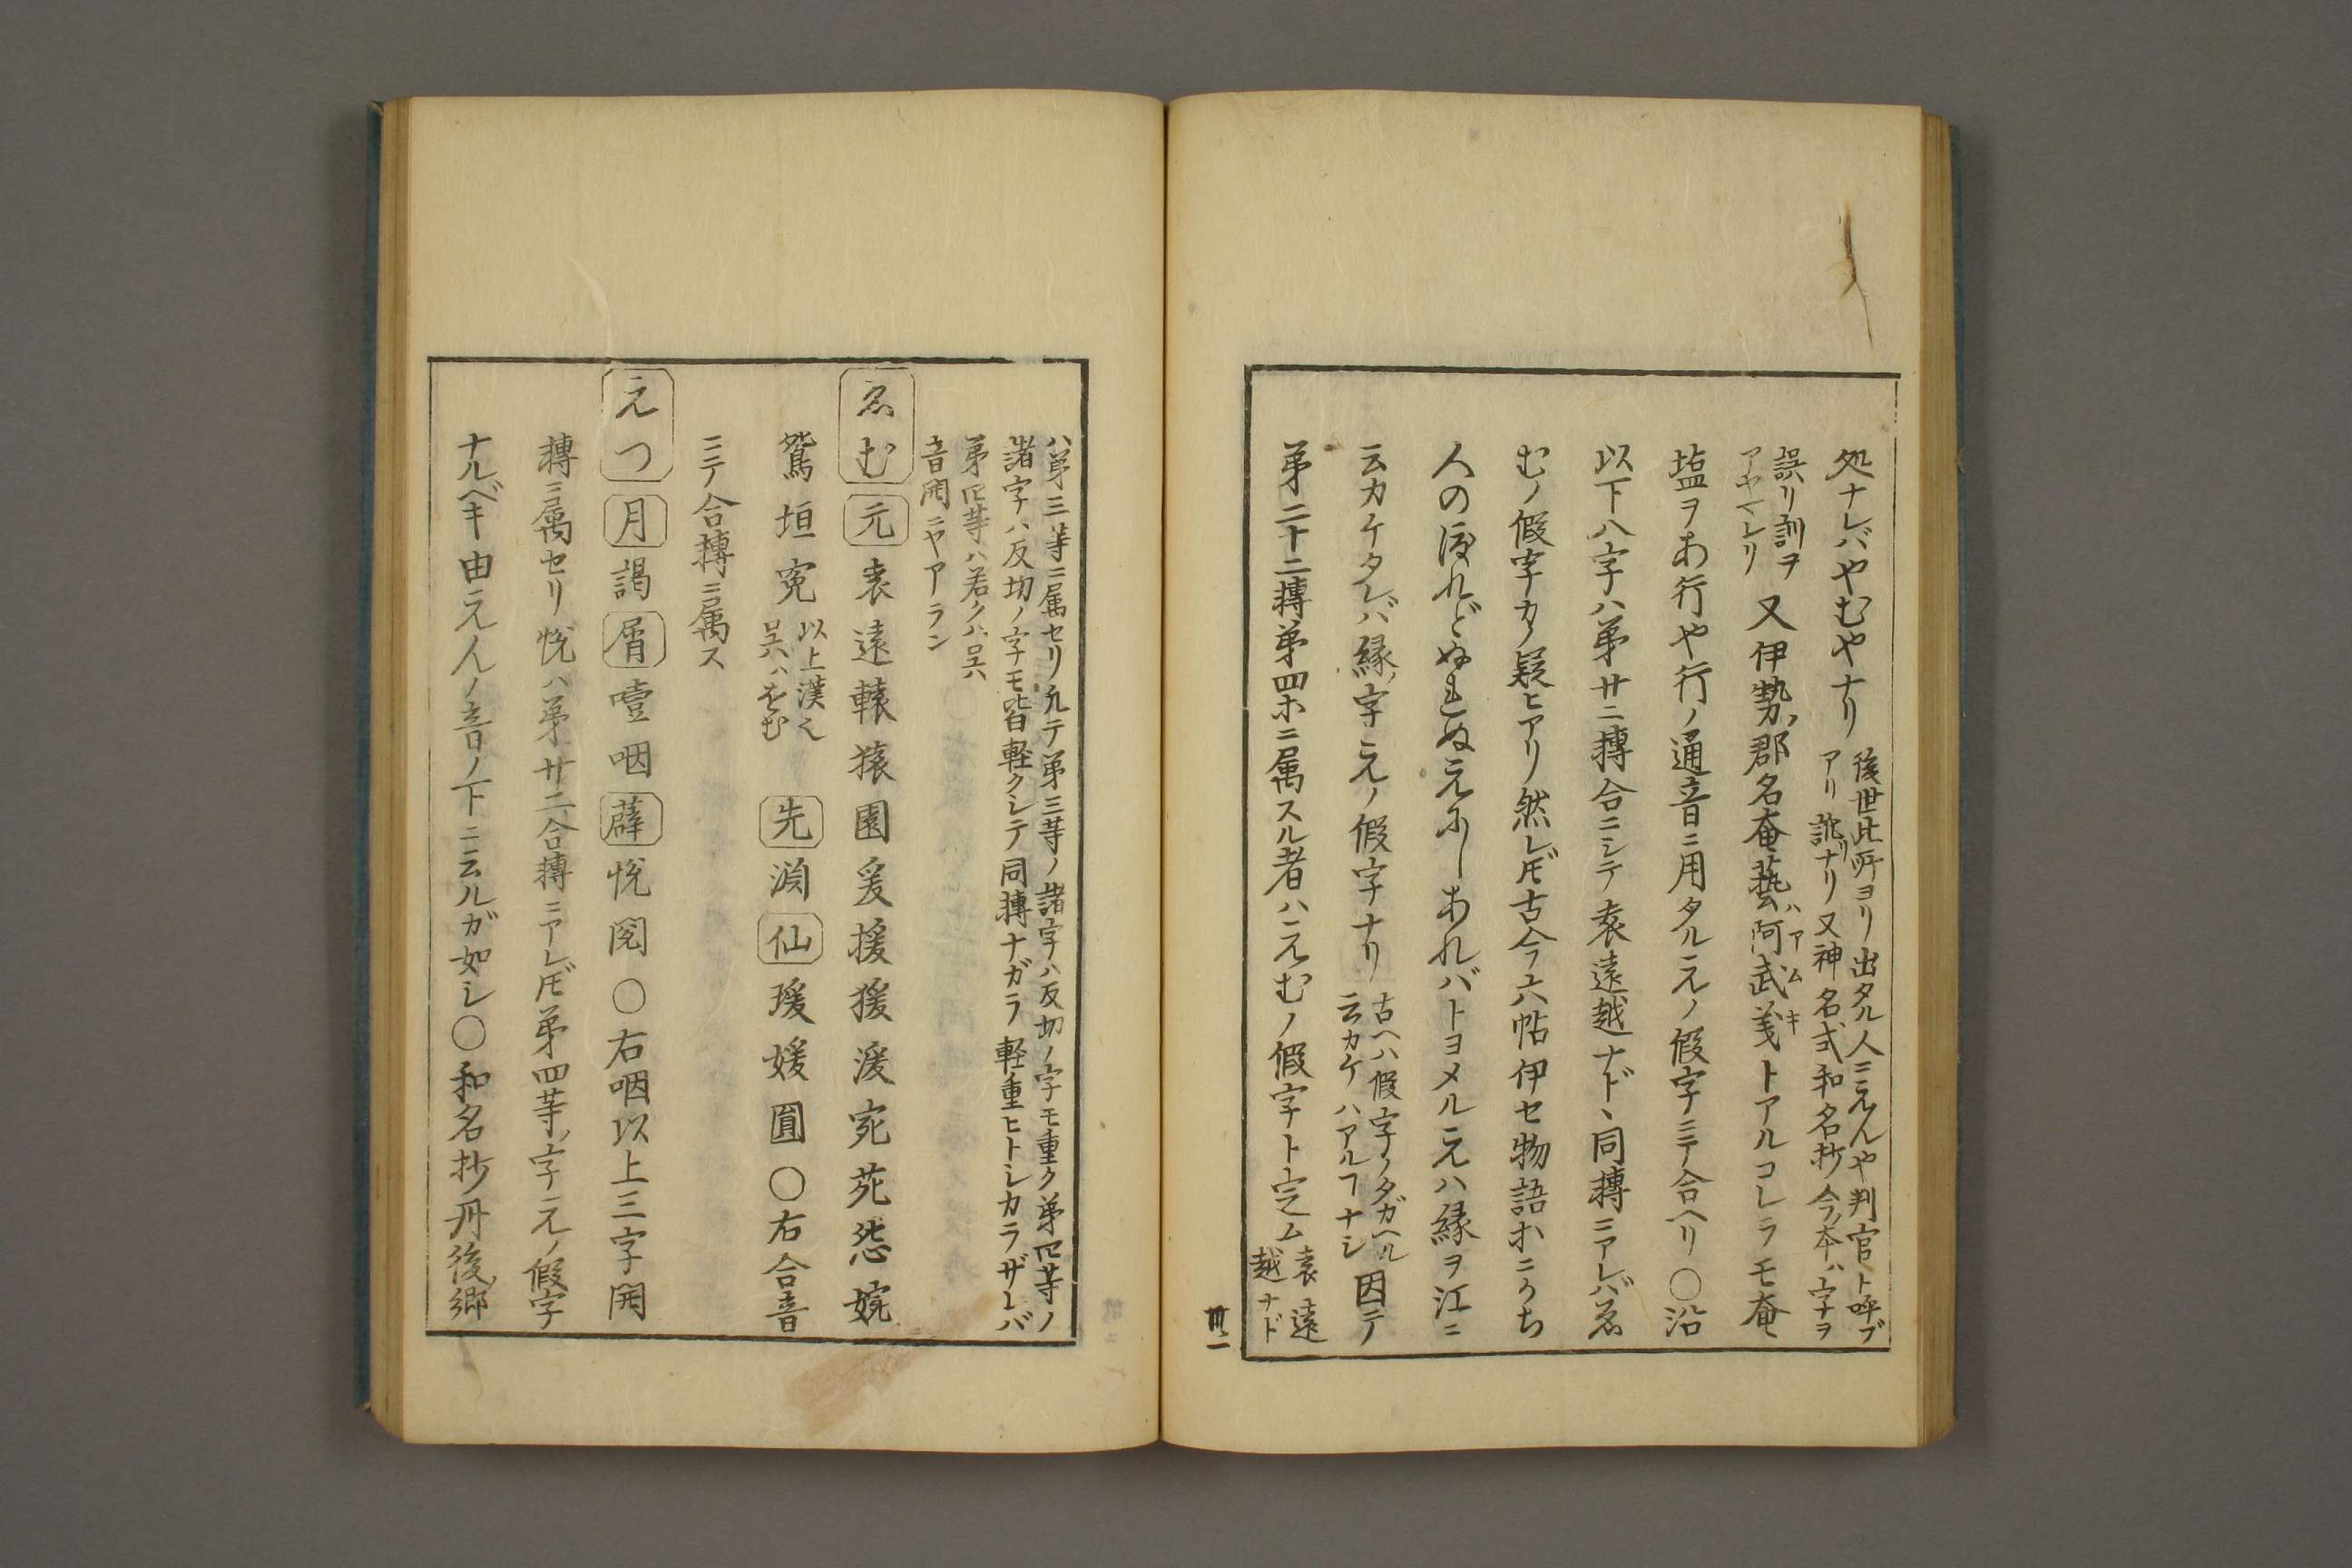 処ナレバやむやナリ
後世此所ヨリ出タル人ニえんや判官ト呼ブ
アリ訛ナリ又神名式和名抄今ノ本ハ字ヲ
誤リ訓ヲ
アヤマレリ
又伊勢ノ郡名奄藝ハ阿武義トアルコレラモ奄
アムキ
塩ヲあ行や行ノ通音ニ用タルえノ假字ニテ合ヘリ〇沿
以下八字ハ第廿二轉合ニシテ袁遠越ナド丶同轉ニアレバゑ
むノ假字カノ疑ヒアリ然レ𪜈古今六帖伊セ物語ホニかち
人のわたれどぬれぬえにしあれバトヨメルえハ縁ヲ江ニ
云カケタレバ縁ノ字えノ假字ナリ
古ヘハ假字ノタガヘル
云カケハアルヿナシ
因テ
第二十二轉第四ホニ属スル者ハえむノ假字ト定ム
袁遠
越ナド
卅二
ハ第三等ニ属セリ凡テ第三等ノ諸字ハ反切ノ字モ重ク第四等ノ
諸字ハ反切ノ字モ皆軽クシテ同轉ナガラ軽重ヒトシカラザレバ
第四等ハ若クハ呉ハ
音開ニヤアラン
ゑむ 元 袁遠轅猿園爰援猨湲宛苑怨婉
鴛垣寃
以上漢之
呉ハをむ
先 淵 仙 瑗媛圓〇右合音
ニテ合轉ニ属ス
えつ 月 謁 屑 噎咽 薜 悦閲〇右咽以上三字開
轉ニ属セリ悦ハ第廿二合轉ニアレ𪜈第四等ノ字えノ假字
ナルベキ由えんノ音ノ下ニ云ルガ如シ〇和名抄丹後ノ郷